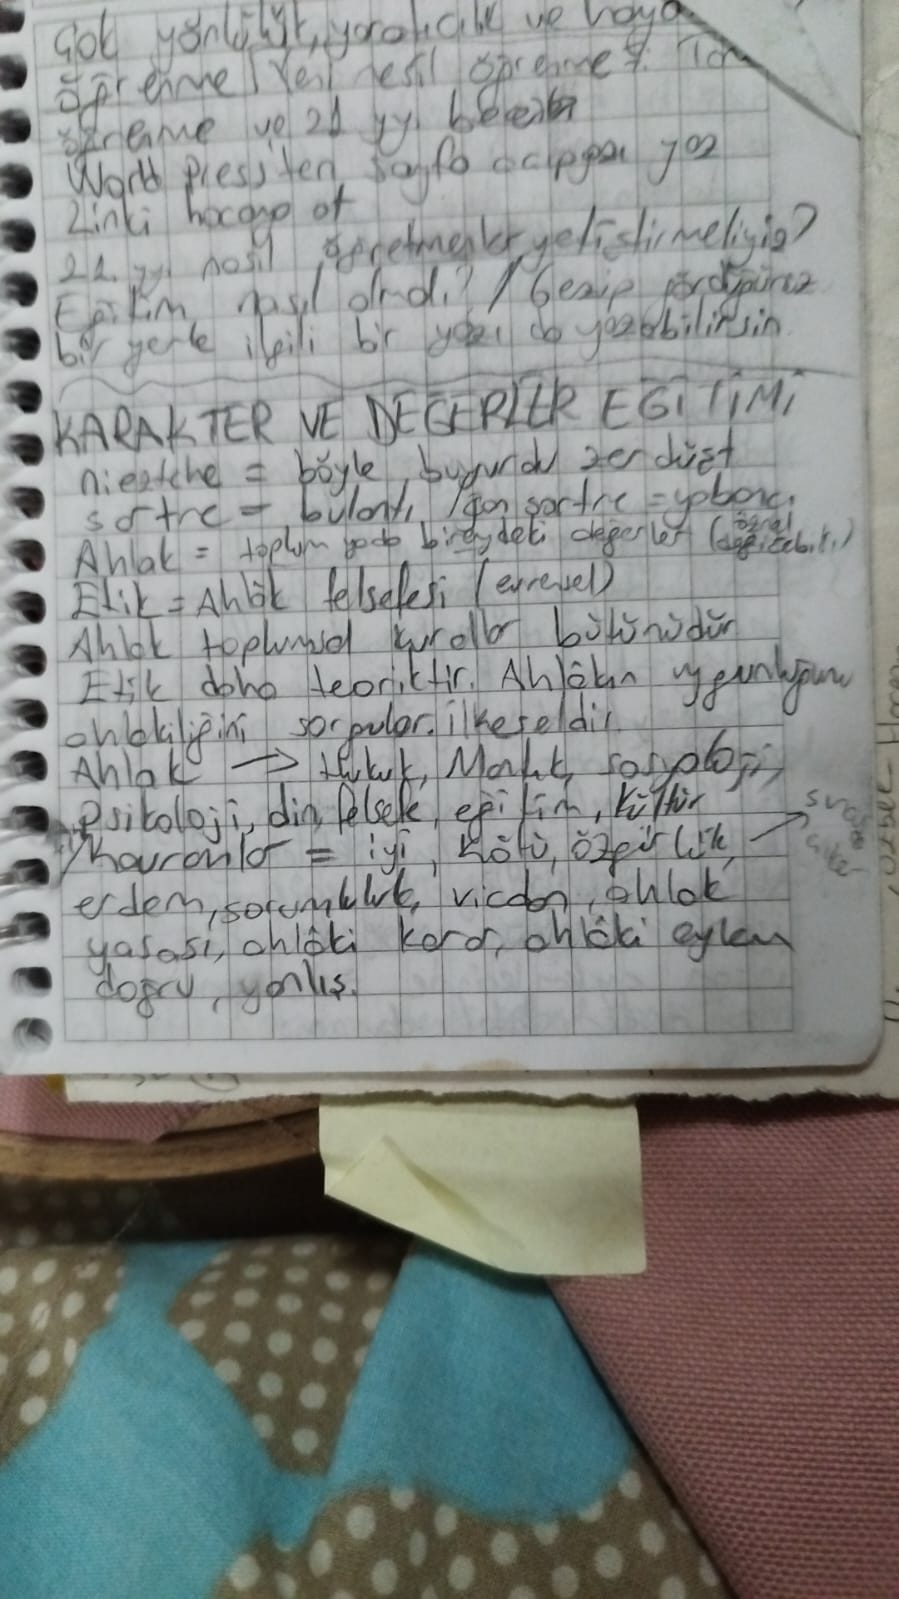 Çok yönlülük, yaratıcılık ve haya
öğrenme / Yeni nesil öğrenme
öğrenme ve 21 yy. beceri
World Press'ten sayfa açıp yaz
Linki hocaya at
21. yy. nasıl öğretmenler yetiştirmeliyiz?
Eğitim nasıl olmalı? / Gezip gördüğünüz
bir yerle ilgili bir yazı da yazabilirsin.
KARAKTER VE DEĞERLER EĞİTİMİ
nieztche = böyle buyurdu zerdüşt
sartre = bulantı, sartre = yabancı
Ahlak = toplum yada bireydeki değerler (öznel
değişebilir.)
Etik = Ahlâk felsefesi (evrensel)
Ahlak toplumsal kurallar bütünüdür
Etik daha teoriktir. Ahlâkın uygunluğunu
ahlakiliğini sorgular. ilkeseldir.
Ahlak → Hukuk, Mantık, sosyoloji,
Psikoloji, din, felsefe, eğitim, kültür
kavramlar = iyi, kötü, özgürlük, →
erdem, sorumluluk, vicdan, ahlak
yasası, ahlâki karar, ahlâki eylem
doğru, yanlış.